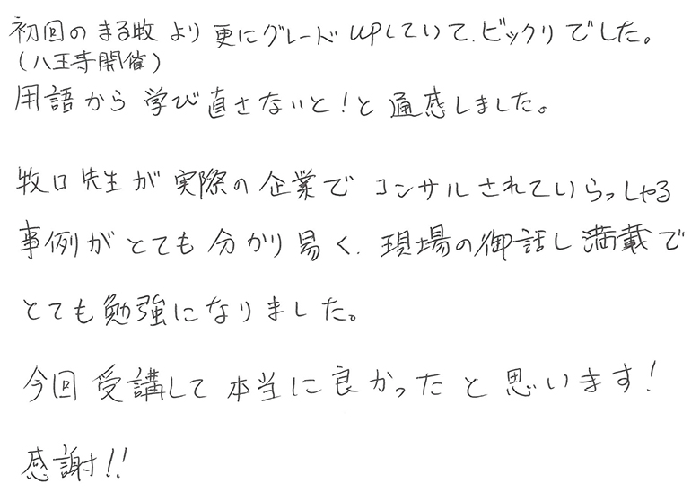 初回のまる牧より更にグレードUPしていて、ビックリでした。
(八王寺開催)
用語から学び直さないと!と通感しました。
牧口先生が実際の企業でコンサルされていらっしゃる
事例がとても分かり易く、現場の御話し満載で
とても勉強になりました。
今回受講して本当に良かったと思います!
感謝!!